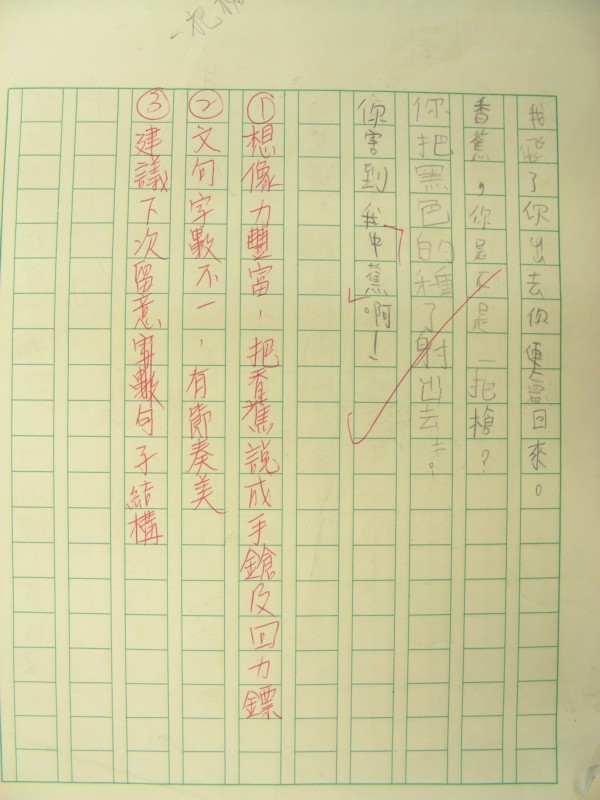 一把槍
我飛了你出去你便會回來。
香蕉，你是不是一把槍？
你把黑色的種子射出去。
你害到我中蕉啊！
①想像力豐富，把香蕉說成手鎗及回力鏢
②文句字數不一，有節奏美
③建議下次留意字數句子結構